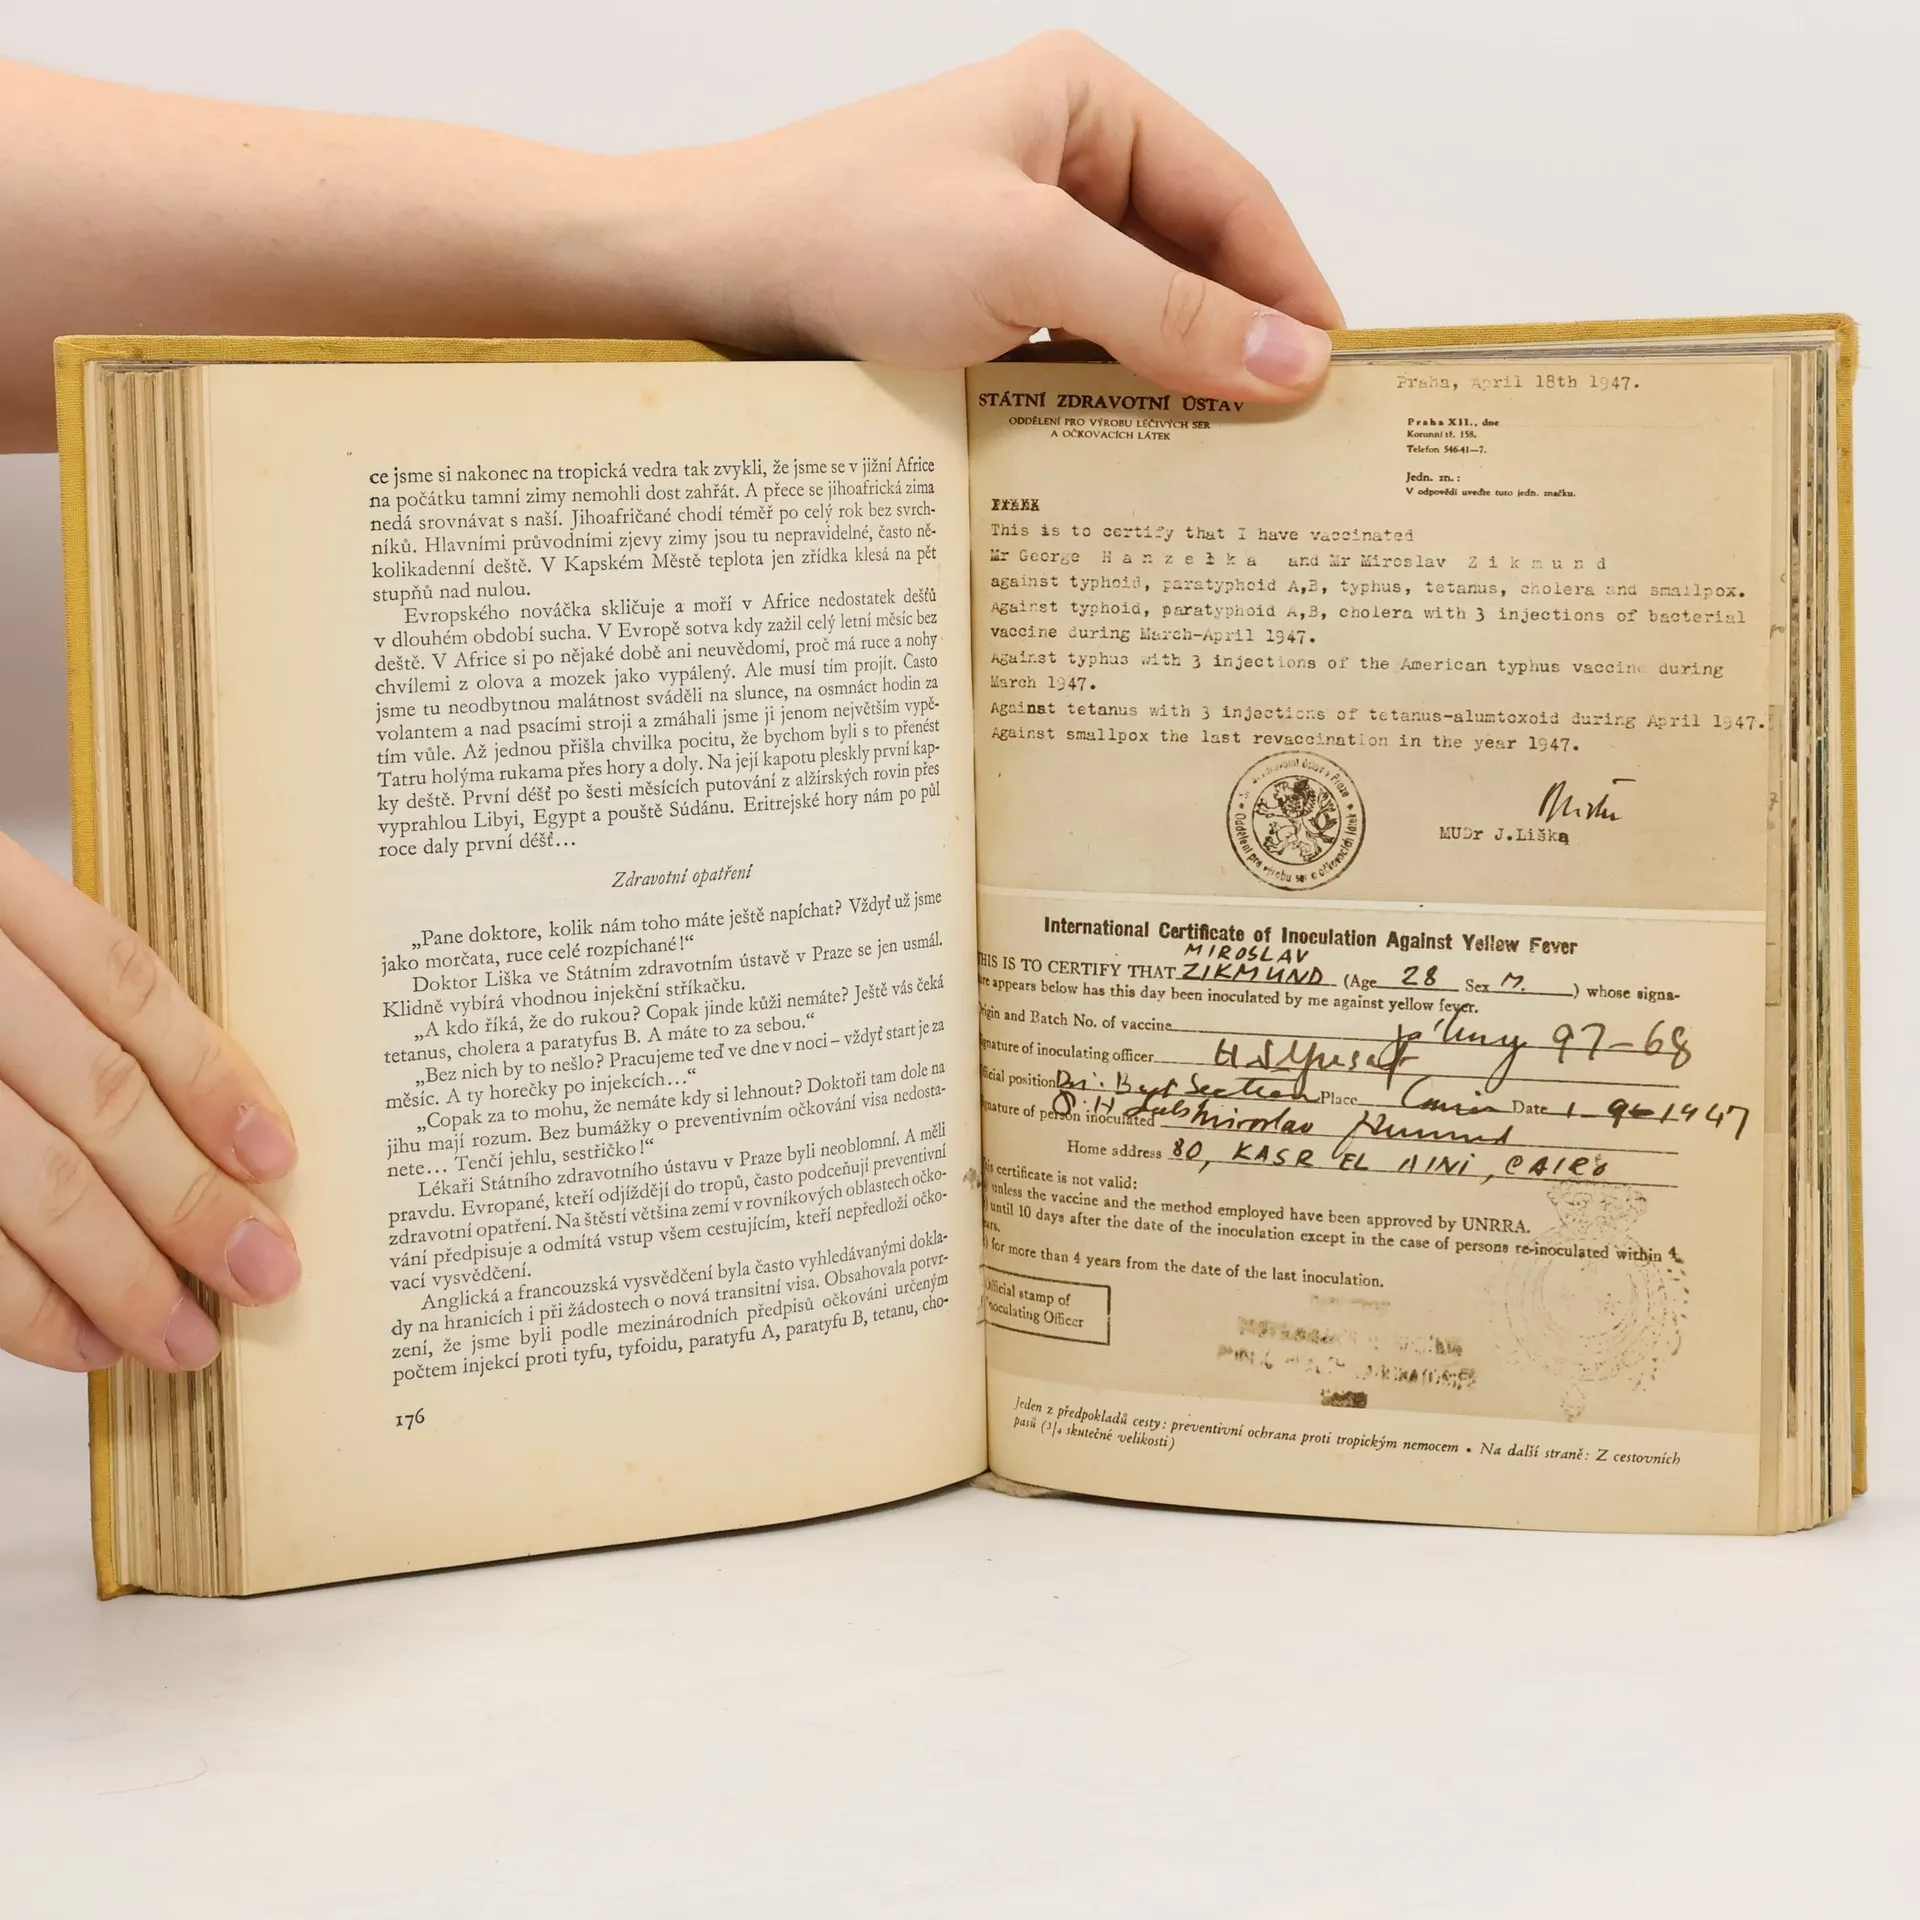 ce jsme si nakonec na tropická vedra tak zvykli, že jsme se v jižní Africe
na počátku tamní zimy nemohli dost zahřát. A přece se jihoafrická zima
nedá srovnávat s naší. Jihoafričané chodí téměř po celý rok bez svrch-
níků. Hlavními průvodními zjevy zimy jsou tu nepravidelné, často ně-
kolikadenní deště. V Kapském Městě teplota jen zřídka klesá na pět
stupňů nad nulou.
Evropského nováčka skličuje a moří v Africe nedostatek dešťů
v dlouhém období sucha. V Evropě sotva kdy zažil celý letní měsíc bez
deště. V Africe si po nějaké době ani neuvědomí, proč má ruce a nohy
chvílemi z olova a mozek jako vypálený. Ale musí tím projít. Často
jsme tu neodbytnou malátnost sváděli na slunce, na osmnáct hodin za
volantem a nad psacími stroji a zmáhali jsme ji jenom největším vypě-
tím vůle. Až jednou přišla chvilka pocitu, že bychom byli s to přenést
Tatru holýma rukama přes hory a doly. Na její kapotu pleskly první kap-
ky deště. První déšť po šesti měsících putování z alžírských rovin přes
vyprahlou Libyi, Egypt a pouště Súdánu. Eritrejské hory nám po půl
roce daly první déšť...
Zdravotní opatření
„Pane doktore, kolik nám toho máte ještě napíchat? Vždyť už jsme
jako morčata, ruce celé rozpíchané!“
Doktor Liška ve Státním zdravotním ústavě v Praze se jen usmál.
Klidně vybírá vhodnou injekční stříkačku.
„A kdo říká, že do rukou? Copak jinde kůži nemáte? Ještě vás čeká
tetanus, cholera a paratyfus B. A máte to za sebou.“
„Bez nich by to nešlo? Pracujeme teď ve dne v noci – vždyť start je za
měsíc. A ty horečky po injekcích...“
„Copak za to mohu, že nemáte kdy si lehnout? Doktoři tam dole na
jihu mají rozum. Bez bumážky o preventivním očkování visa nedosta-
nete... Tenčí jehlu, sestřičko!“
Lékaři Státního zdravotního ústavu v Praze byli neoblomní. A měli
pravdu. Evropané, kteří odjíždějí do tropů, často podceňují preventivní
zdravotní opatření. Na štěstí většina zemí v rovníkových oblastech očko-
vání předpisuje a odmítá vstup všem cestujícím, kteří nepředloží očko-
vací vysvědčení.
Anglická a francouzská vysvědčení byla často vyhledávanými dokla-
dy na hranicích i při žádostech o nová transitní visa. Obsahovala potvr-
zení, že jsme byli podle mezinárodních předpisů očkováni určeným
počtem injekcí proti tyfu, tyfoidu, paratyfu A, paratyfu B, tetanu, cho-
176
Praha, April 18th 1947.
STÁTNÍ ZDRAVOTNÍ ÚSTAV
ODDĚLENÍ PRO VÝROBU LÉČIVÝCH SER
A OČKOVACÍCH LÁTEK
Praha XII., dne
Korunní tř. 158.
Telefon 546-41—7.
Jedn. zn.:
V odpovědi uveďte tuto jedn. značku.
This is to certify that I have vaccinated
Mr George Hanzelka and Mr Miroslav Zikmund
against typhoid, paratyphoid A,B, typhus, tetanus, cholera and smallpox.
Against typhoid, paratyphoid A,B, cholera with 3 injections of bacterial
vaccine during March-April 1947.
Against typhus with 3 injections of the American typhus vaccine during
March 1947.
Against tetanus with 3 injections of tetanus-alumtoxoid during April 1947.
Against smallpox the last revaccination in the year 1947.
Oddělení pro výrobu ser a očkovacích látek
MUDr J.Liška
International Certificate of Inoculation Against Yellow Fever
MIROSLAV
THIS IS TO CERTIFY THAT ZIKMUND (Age 28 Sex M. ) whose signa-
ture appears below has this day been inoculated by me against yellow fever.
Origin and Batch No. of vaccine 97-68
Signature of inoculating officer
Official position Place Cairo Date 1-9-1947
Signature of person inoculated Miroslav Zikmund
Home address 80, KASR EL AINI, CAIRO
This certificate is not valid:
unless the vaccine and the method employed have been approved by UNRRA.
until 10 days after the date of the inoculation except in the case of persons re-inoculated within 4
years.
for more than 4 years from the date of the last inoculation.
Official stamp of
Inoculating Officer
Jeden z předpokladů cesty: preventivní ochrana proti tropickým nemocem • Na další straně: Z cestovních
pasů (3/4 skutečné velikosti)